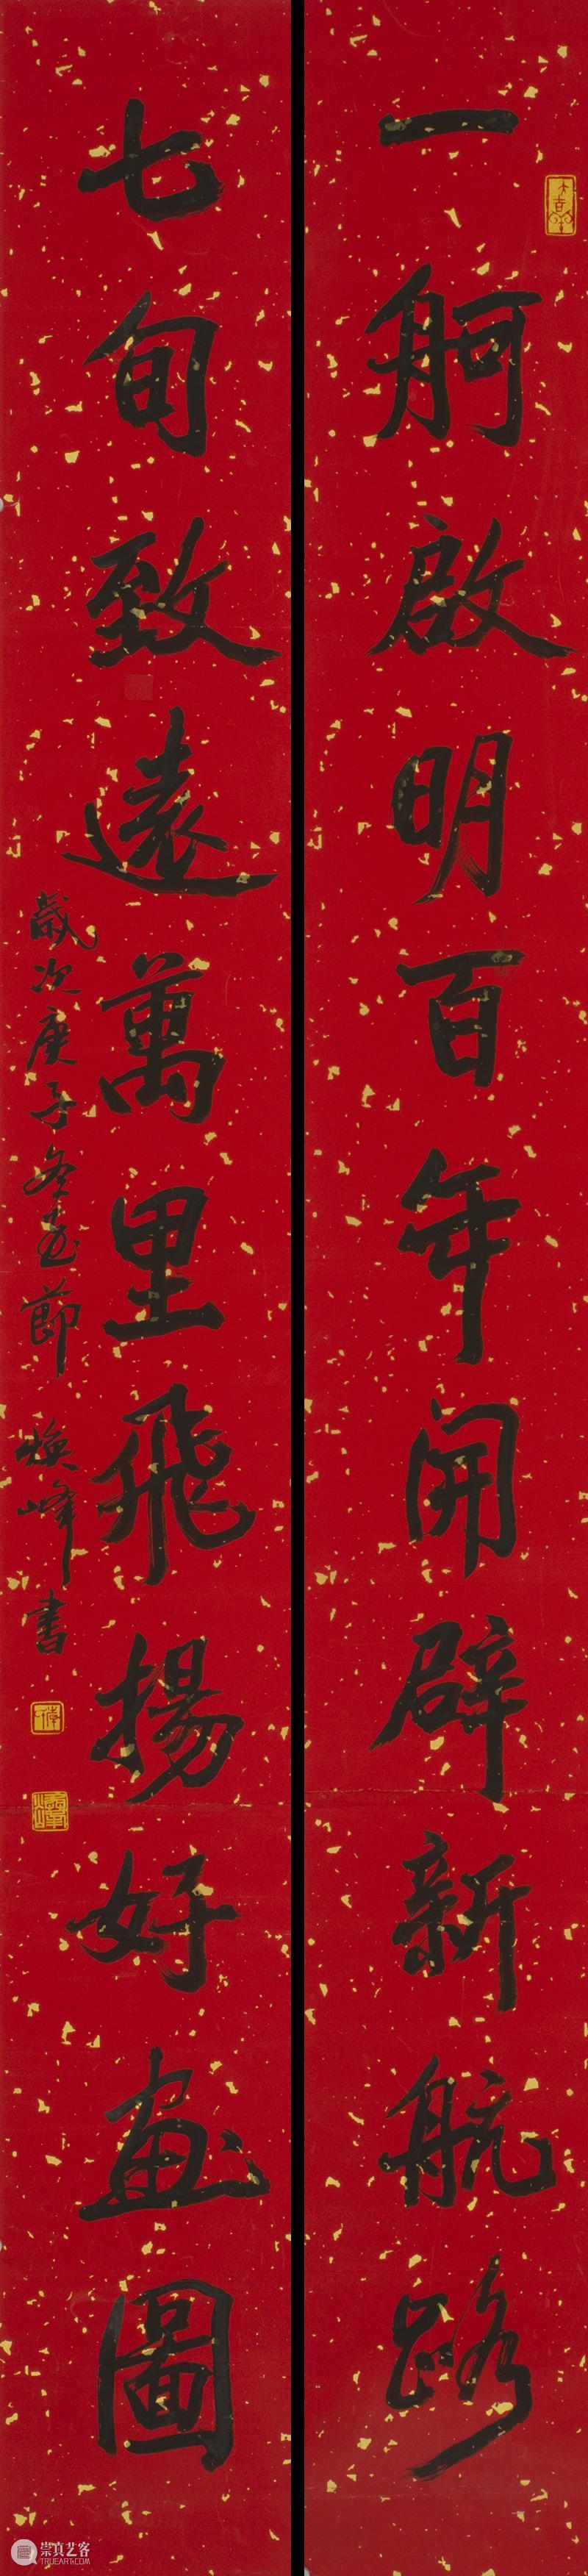 一舸啟明百年開辟新航路
七旬致遠萬里飛揚好畫圖
歲次庚子冬至節 煥峰書
崇真艺客
TRUEART.COM